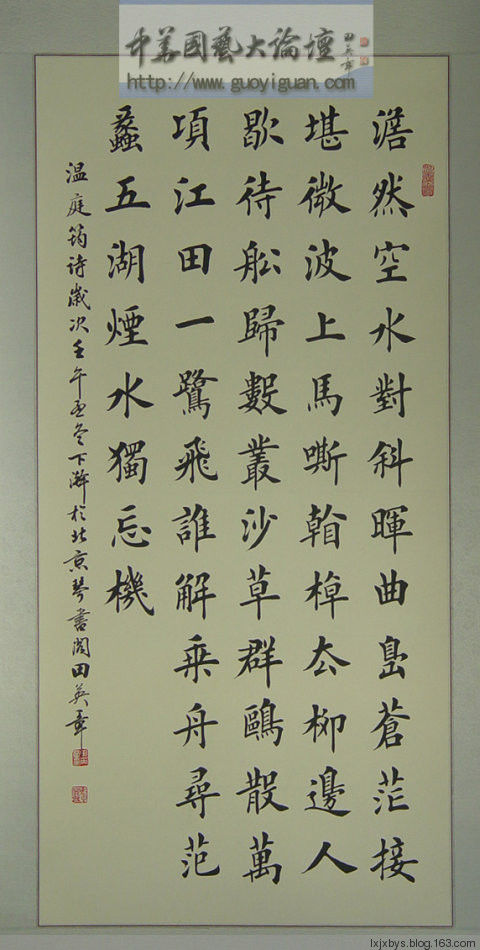 中華國藝大論壇
田英章
http://www.guoyiguan.com
澹然空水對斜暉曲島蒼茫接
堪微波上馬嘶棹厺柳邊人
歇待舩歸數叢沙草群鷗散萬
項江田一鷺飛誰解乘舟尋范
蠡五湖煙水獨忘機
温庭筠诗歲次壬午孟冬下澣於北京琴書閣田英章
lxjxbys.blog.163.com